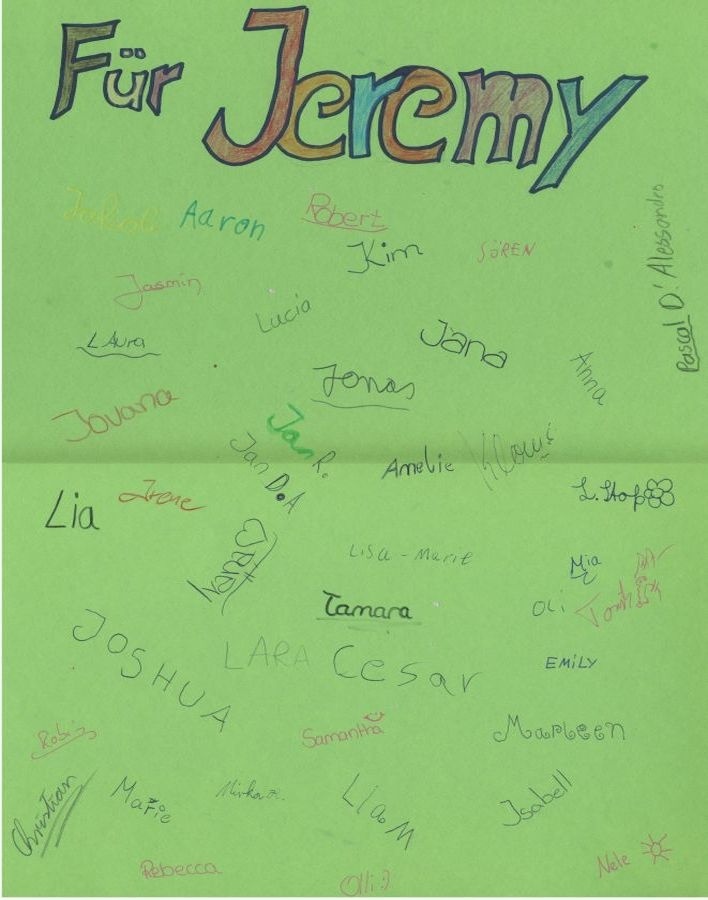 Für Jeremy
Aaron
Robert
Kim
SÖREN
Pascal D'Alessandro
Jasmin
Lucia
LAura
Jana
Anna
Jonas
Jovana
Jan R.
Jan D.A
Amelie
Klaus
L. Stop
Lia
Irene
Lisa-Marie
Mia
Tamara
Oli
Tom
JOSHUA
LARA
Cesar
EMILY
Robin
Samantha
Marleen
Christian
Marie
Mirko
Lia M
Isabell
Rebecca
Olli :)
Nele